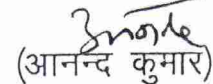 (आनन्द कुमार)